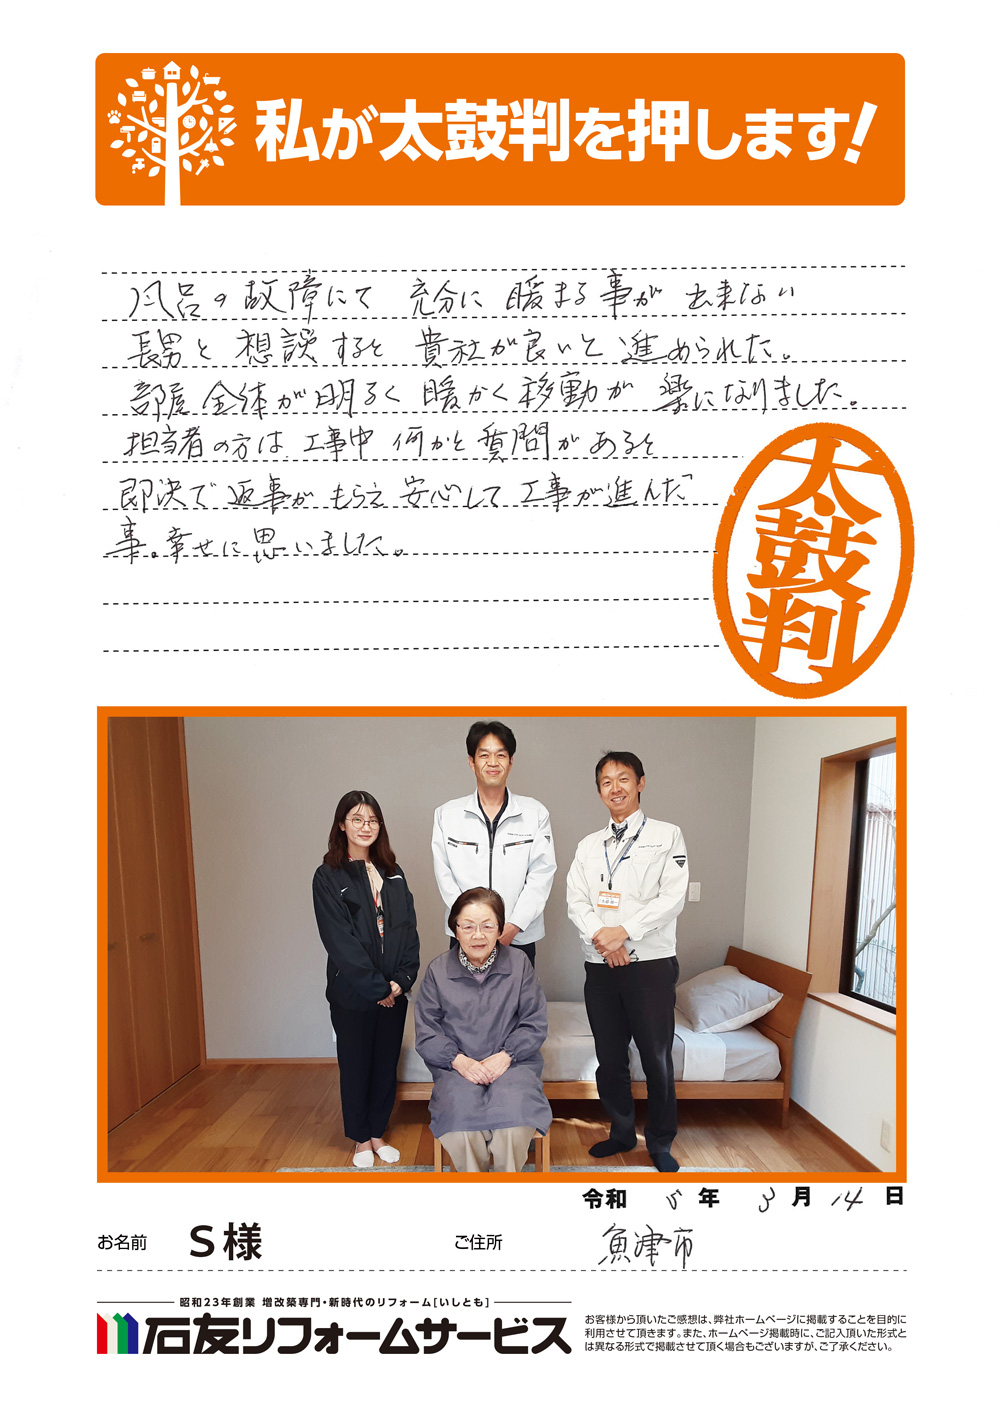 私が太鼓判を押します!
風呂の故障にて 充分に 暖まる事が 出来ない
長男と 想談すると 貴社が良いと進められた。
部屋全体が明るく 暖かく移動が 楽になりました。
担当者の方は 工事中 何かと質問があると
即決で返事がもらえ 安心して工事が進んだ
事。幸せに思いました。
太鼓判
令和 5 年 3 月 14 日
お名前 S様 ご住所 魚津市
昭和23年創業 増改築専門・新時代のリフォーム[いしとも]
石友リフォームサービス
お客様から頂いたご感想は、弊社ホームページに掲載することを目的に
利用させて頂きます。また、ホームページ掲載時に、ご記入頂いた形式と
は異なる形式で掲載させて頂く場合もございますが、ご了承ください。